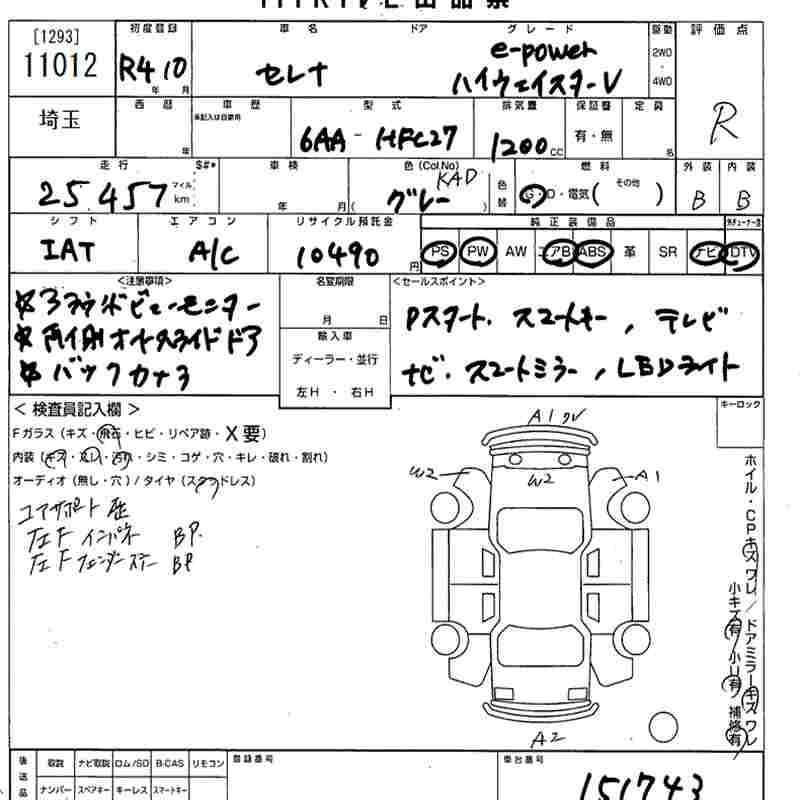 [1293] 初度登録 車名 ドア グレード 駆動 評価点
11012 R4 10 セレナ e-power 2WD
年 月 ハイウェイスターV ・4WD R
埼玉 西暦 車歴 型式 排気量 保証書 定員
未記入は自家用
年 6AA - HFC27 1200cc 有・無 名
走行 $#* 車検 色(Col No) 燃料 外装 内装
25,457 マイル km 年 月 グレー KAD 色替 G・D・電気( その他 ) B B
シフト エアコン リサイクル預託金 純正装備品
IAT A/C 10490円 PS PW AW エアB ABS 革 SR ナビ DTV
<注意事項> 名変期限 <セールスポイント>
月 日
バックカメラ
Pスタート. スマートキー, テレビ
ナビ. スマートミラー, LEDライト
輸入車
ディーラー・並行
左H ・ 右H
< 検査員記入欄 > キーロック
Fガラス (キズ・飛石・ヒビ・リペア跡・X要)
内装 (キズ・スレ・汚れ・シミ・コゲ・穴・キレ・破れ・割れ)
オーディオ (無し・穴) / タイヤ (スタッドレス)
コアサポート 歪
左F インパネ BP.
左F フェンダーステー BP
A1
W2 W2 A1
A2
ホイル・CPキズ ワレ / ドアミラーキズ ワレ
小キズ有 小U有 補修有
後送品 取説 ナビ取説 ロム/SD B-CAS リモコン 登録番号 車台番号
ナンバー スペアキー キーレス スマートキー 151743